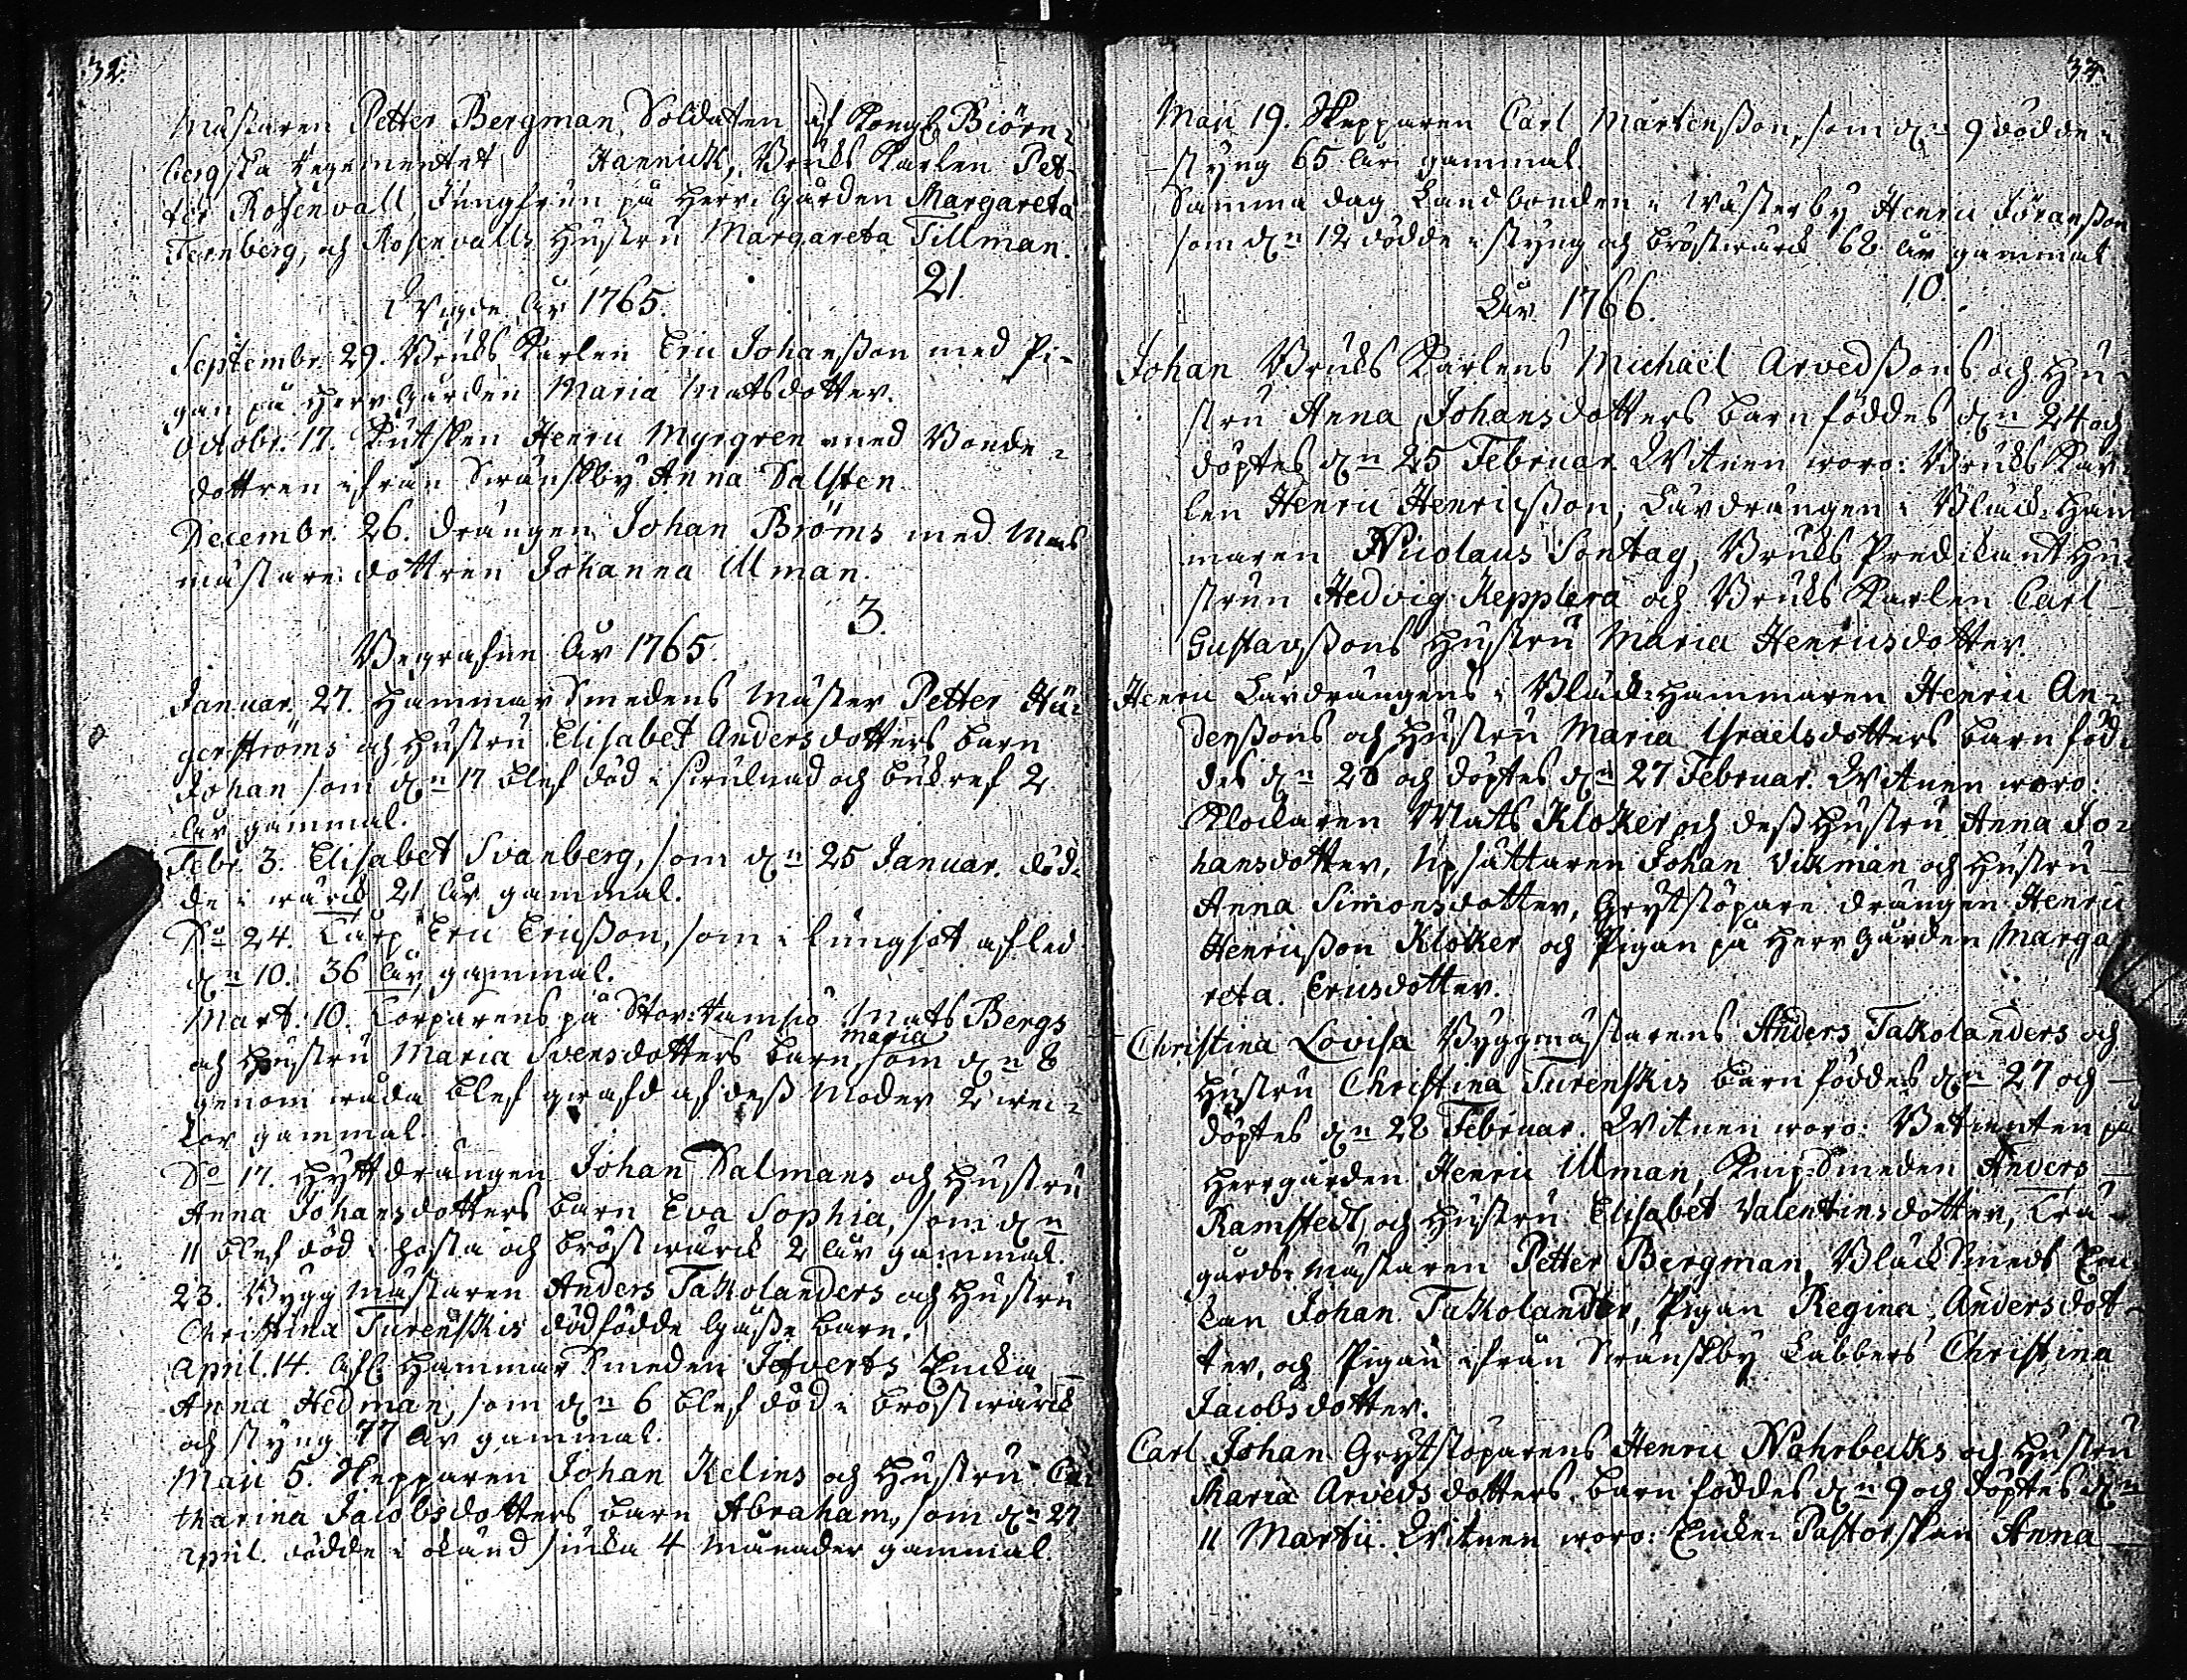 32.
mästaren Petter Bergman, Soldaten af Kongl. Biörn-
bergska regementet Hannick, Bruks Karlen Pet-
ter Rosenvall, Jungfrun på Herr-Gården Margareta
Ternberg, och Rosenvalls Hustru Margareta Tillman.
21
Vigde Åhr 1765.
Septembr. 29. Bruks Karlen Eric Johansson med Pi-
gan på Herr Gården Maria Matsdotter.
Octobr. 17. Kutsken Henric Myrgren med Bonde-
dottren ifrån Svenskby Anna Salsten.
Decembr. 26. Drängen Johan Bröms med Mas
mästare dottren Johanna Ullman.
3.
Begrafne Åhr 1765.
Januar. 27. Hammar Smedens Mäster Petter Hä-
gerströms och Hustru Elisabet Andersdotters barn
Johan som d:n 17 blef död i och bukref 2
år gammal.
Febr. 3. Elisabet Svanberg, som d:n 25 Januar. död-
de i wärck 21 år gammal.
D:o 24. Torp Eric Ericsson, som i lungsot afled
d:n 10. 36 år gammal.
Mart. 10. Torparens på Stor-Ramsiö Mats Bergs
och Hustru Maria Svensdotters barn Maria som d:n 8
genom wåda blef qwafd af dess Moder 2 wec-
kor gammal.
D:o 17. Hyttdrängen Johan Salmans och Hustru
Anna Johansdotters barn Eva Sophia, som d:n
11 blef död i hosta och bröstwärck 2 år gammal.
23. Bygg mästaren Anders Takolanders och Hustru
Christina Turenskis dödfödde Gosse barn.
April. 14. Afl. Hammar Smeden Jefverts Encka
Anna Hedman, som d:n 6 blef död i bröstwärck
och styng 77 år gammal.
Maii 5. Skepparen Johan Kelins och Hustru Ca-
tharina Jacobsdotters barn Abraham, som d:n 27
April. dödde i okänd siucka 4 månader gammal.
33
Maii 19. Skepparen Carl Mårtensson, som d:n 9 dödde i
styng 65 år gammal.
Samma dag Landbonden i Wästerby Henric Jöransson
som d:n 12 dödde i styng och bröstwärck 68 år gammal
10.
Åhr 1766.
Johan Bruks Karlens Michael Arvedssons och Hu-
stru Anna Johansdotters barn föddes d:n 24 och
döptes d:n 25 Februar. Witnen woro: Bruks Kar-
len Henric Henricsson, Lärdrängen i Bläck-Ham
maren Nicolaus Sontag, Bruks Predikant Hu-
strun Hedvig Kepplera och Bruks Karlen Carl
Gustavssons Hustru Maria Henricsdotter.
Henric Lärdrängens i Bläck-Hammaren Henric An-
derssons och Hustru Maria Israelsdotters barn föd-
des d:n 26 och döptes d:n 27 Februar. Witnen woro:
Klockaren Mats Kloker och dess Hustru Anna Jo-
hansdotter, Upsättaren Johan Vikman och Hustru
Anna Simonsdotter, Grytstöpare drängen Henric
Henricsson Kloker och Pigan på Herr Gården Marga
reta Ericsdotter.
Christina Lovisa Byggmästarens Anders Takolanders och
Hustru Christina Turenskis barn föddes d:n 27 och
döptes d:n 28 Februar. Witnen woro: Betienten på
Herrgården Henric Ullman, Knip-Smeden Anders
Ramstedt, och Hustru Elisabet Valentinsdotter, Trä-
gårds-Mästaren Petter Bergman, Bläck Smeds
Johan Takolander, Pigan Regina Andersdot-
ter, och Pigan ifrån Svenskby Labbers Christina
Jacobsdotter.
Carl Johan Grytstöparens Henric Nohrbecks och Hustru
Maria Arvedsdotters barn föddes d:n 9 och döptes d:n
11 Martii. Witnen woro: Encke-Pastorskan Anna